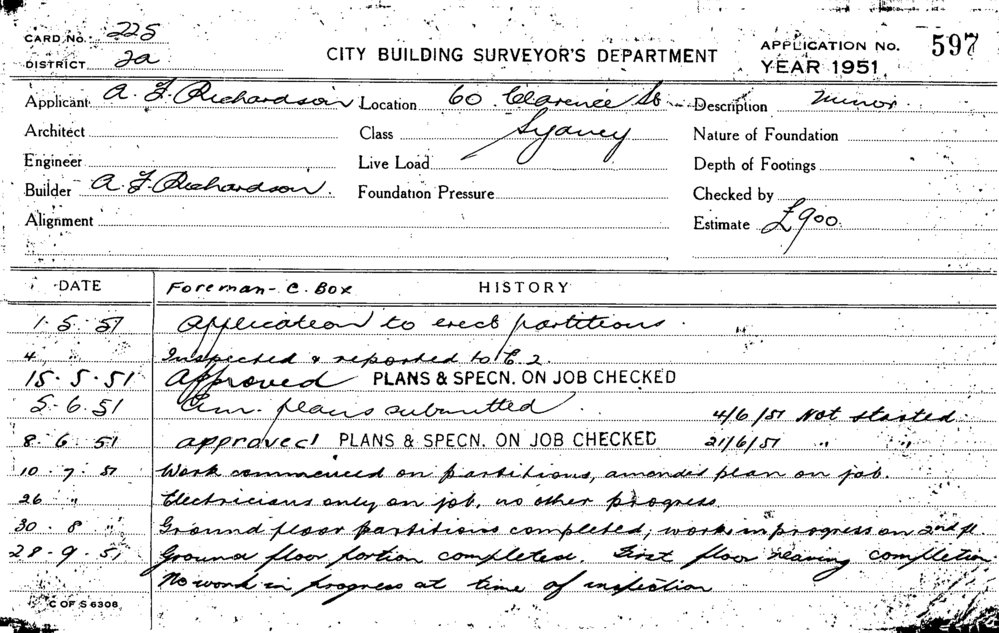 CARD No. 225
DISTRICT 2a
CITY BUILDING SURVEYOR'S DEPARTMENT
APPLICATION No. 597
YEAR 1951
Applicant A. F. Richardson Location 60 Clarence St Description Minor
Architect Class Sydney Nature of Foundation
Engineer Live Load Depth of Footings
Builder A. F. Richardson. Foundation Pressure Checked by
Alignment Estimate £900.
DATE Foreman - C. Box HISTORY
1. 5. 51 Application to erect partitions.
4 " Inspected & reported to C. 2.
15. 5. 51 Approved PLANS & SPECN. ON JOB CHECKED
5. 6. 51 Am. plans submitted 4/6/51 Not started.
8. 6. 51 approved PLANS & SPECN. ON JOB CHECKED 21/6/51 " "
10. 7. 51 Work commenced on partitions, amended plan on job.
26 " Electricians only on job, no other progress.
30. 8 " Ground floor partitions completed, work in progress on 2nd fl.
28. 9. 51 Ground floor portion completed. First floor nearing completion
No work in progress at time of inspection
C OF S 6308